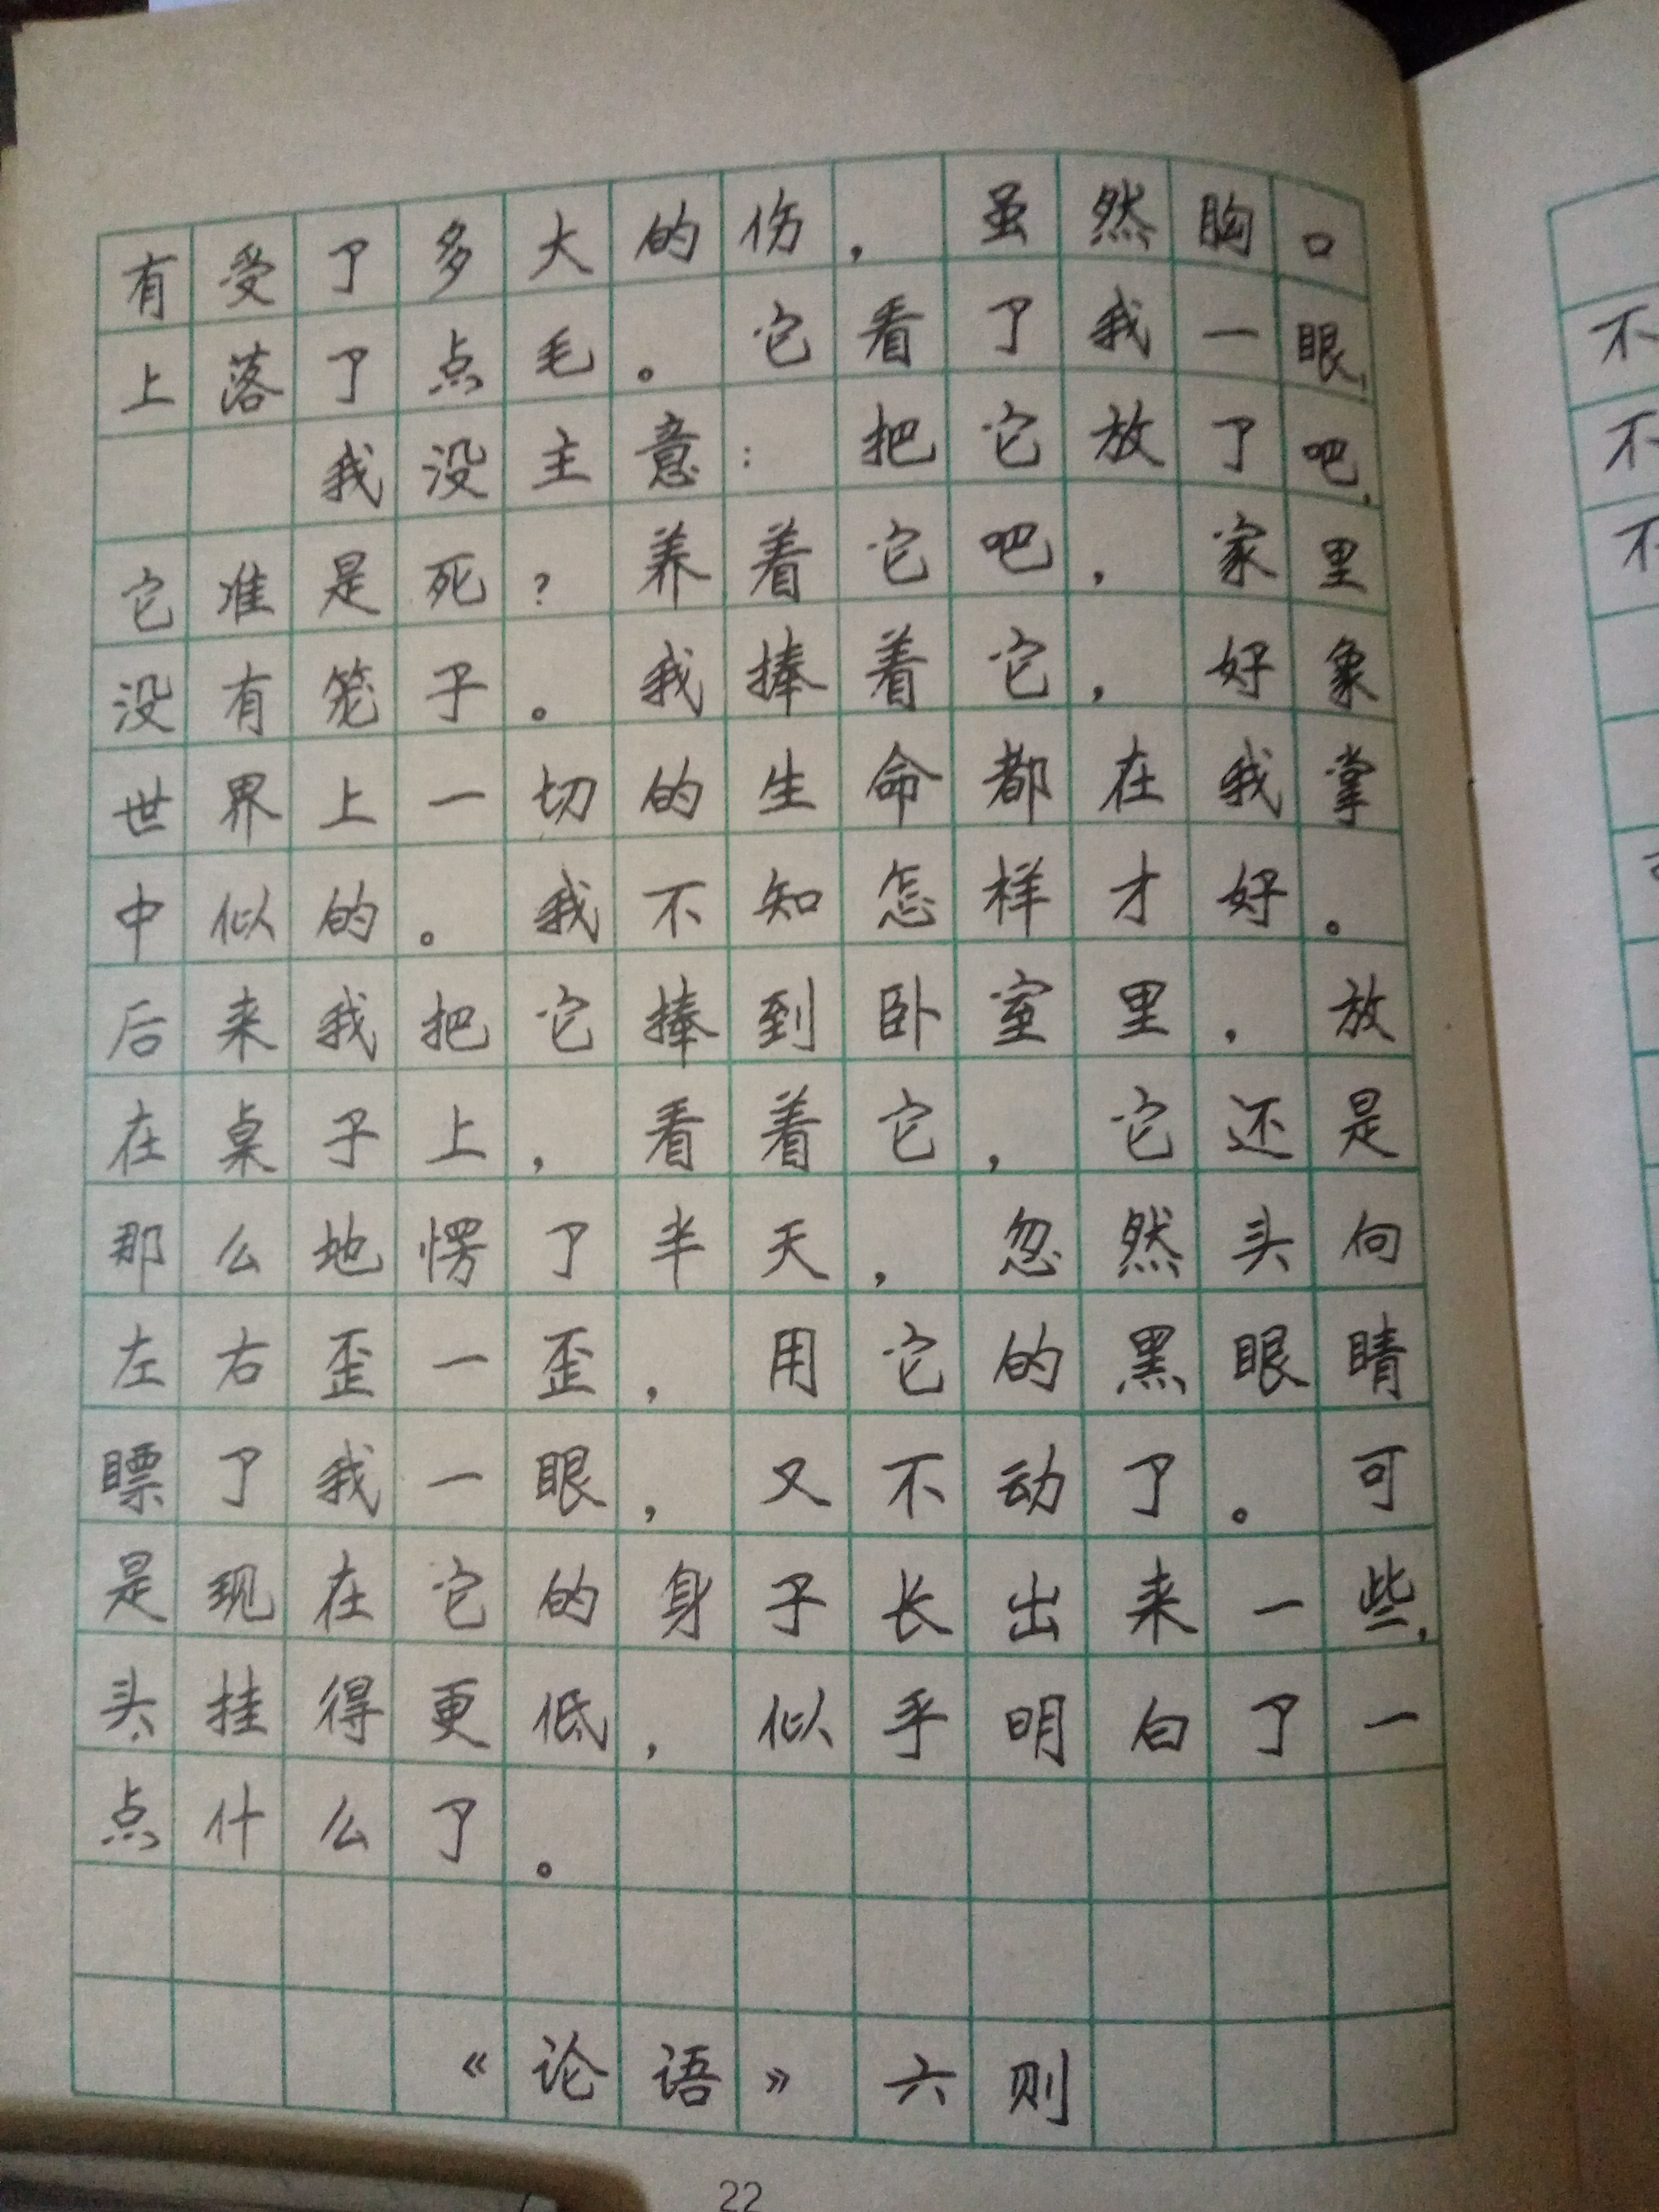 有受了多大的伤，虽然胸口
上落了点毛。它看了我一眼，
我没主意：把它放了吧，
它准是死？养着它吧，家里
没有笼子。我捧着它，好象
世界上一切的生命都在我掌
中似的。我不知怎样才好。
后来我把它捧到卧室里，放
在桌子上，看着它，它还是
那么地愣了半天，忽然头向
左右歪一歪，用它的黑眼睛
瞟了我一眼，又不动了。可
是现在它的身子长出来一些，
头挂得更低，似乎明白了一
点什么了。
《论语》六则
22
不
不
不